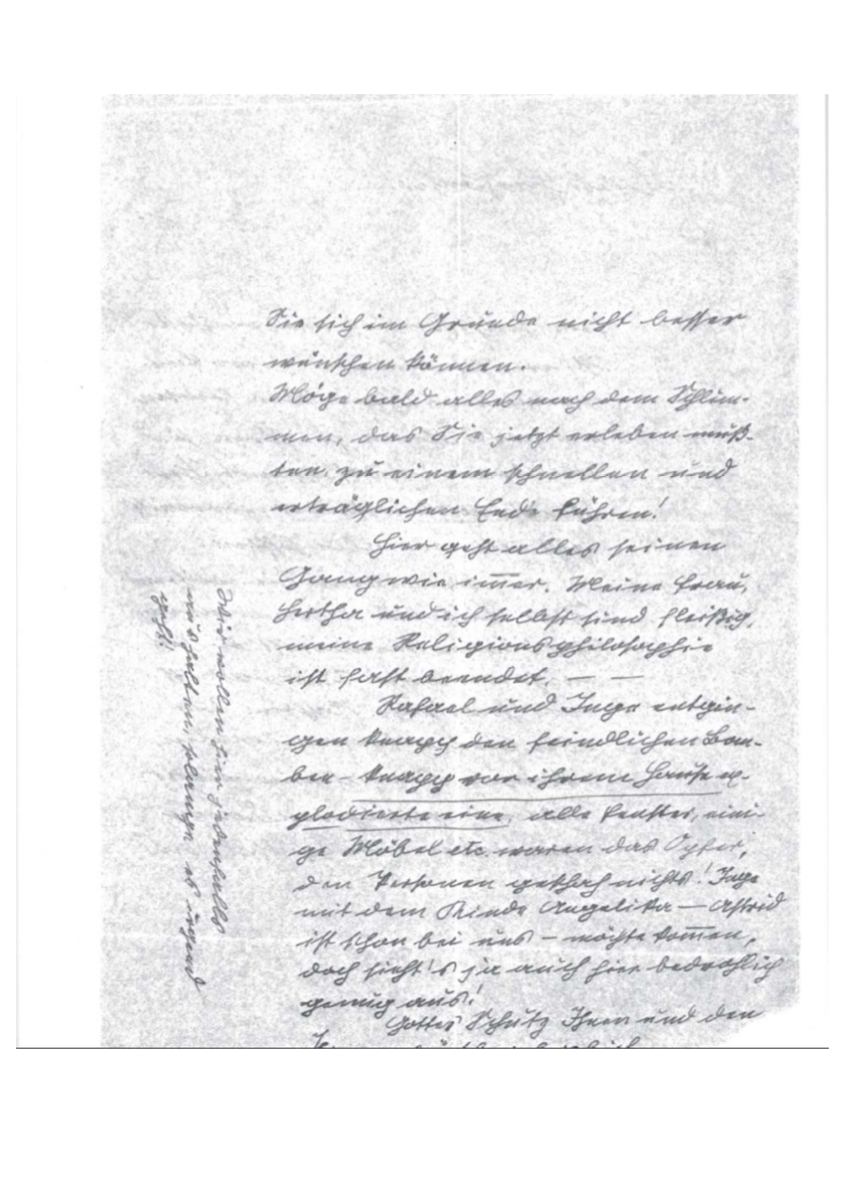 Sie sich im Grunde nicht besser
wünschen können.
Möge bald alles nach dem Schlim-
men, das Sie jetzt erleben muß-
ten, zu einem schnellen und
erträglichen Ende führen!
Hier geht alles seinen
Gang wie im̅er. Meine Frau,
Hertha und ich selbst sind fleißig,
meine Religionsphilosophie
ist fast beendet. — —
Rafael und Inge entgin-
gen knapp den feindlichen Bom-
ben – knapp vor ihrem Hause ex-
plodierte eine, alle Fenster, eini-
ge Möbel etc. waren das Opfer,
den Personen geschah nichts! Inge
mit dem Kinde Angelika — Astrid
ist schon bei uns – möchte kom̅en,
doch sieht's ja auch hier bedrohlich
genug aus!
Gottes Schutz Ihnen und den
Wir wollen hier jedenfalls
aushalten, solange es irgend
geht!